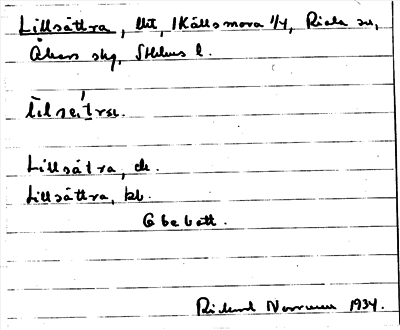 Lillsättra, lht, i Källsmora 1/4, Riala sn,
Åkers skg, Sthlms l.
Lillsätra, dr.
Lillsättra, kb.
Obebott.
Rickard Norrman 1934.